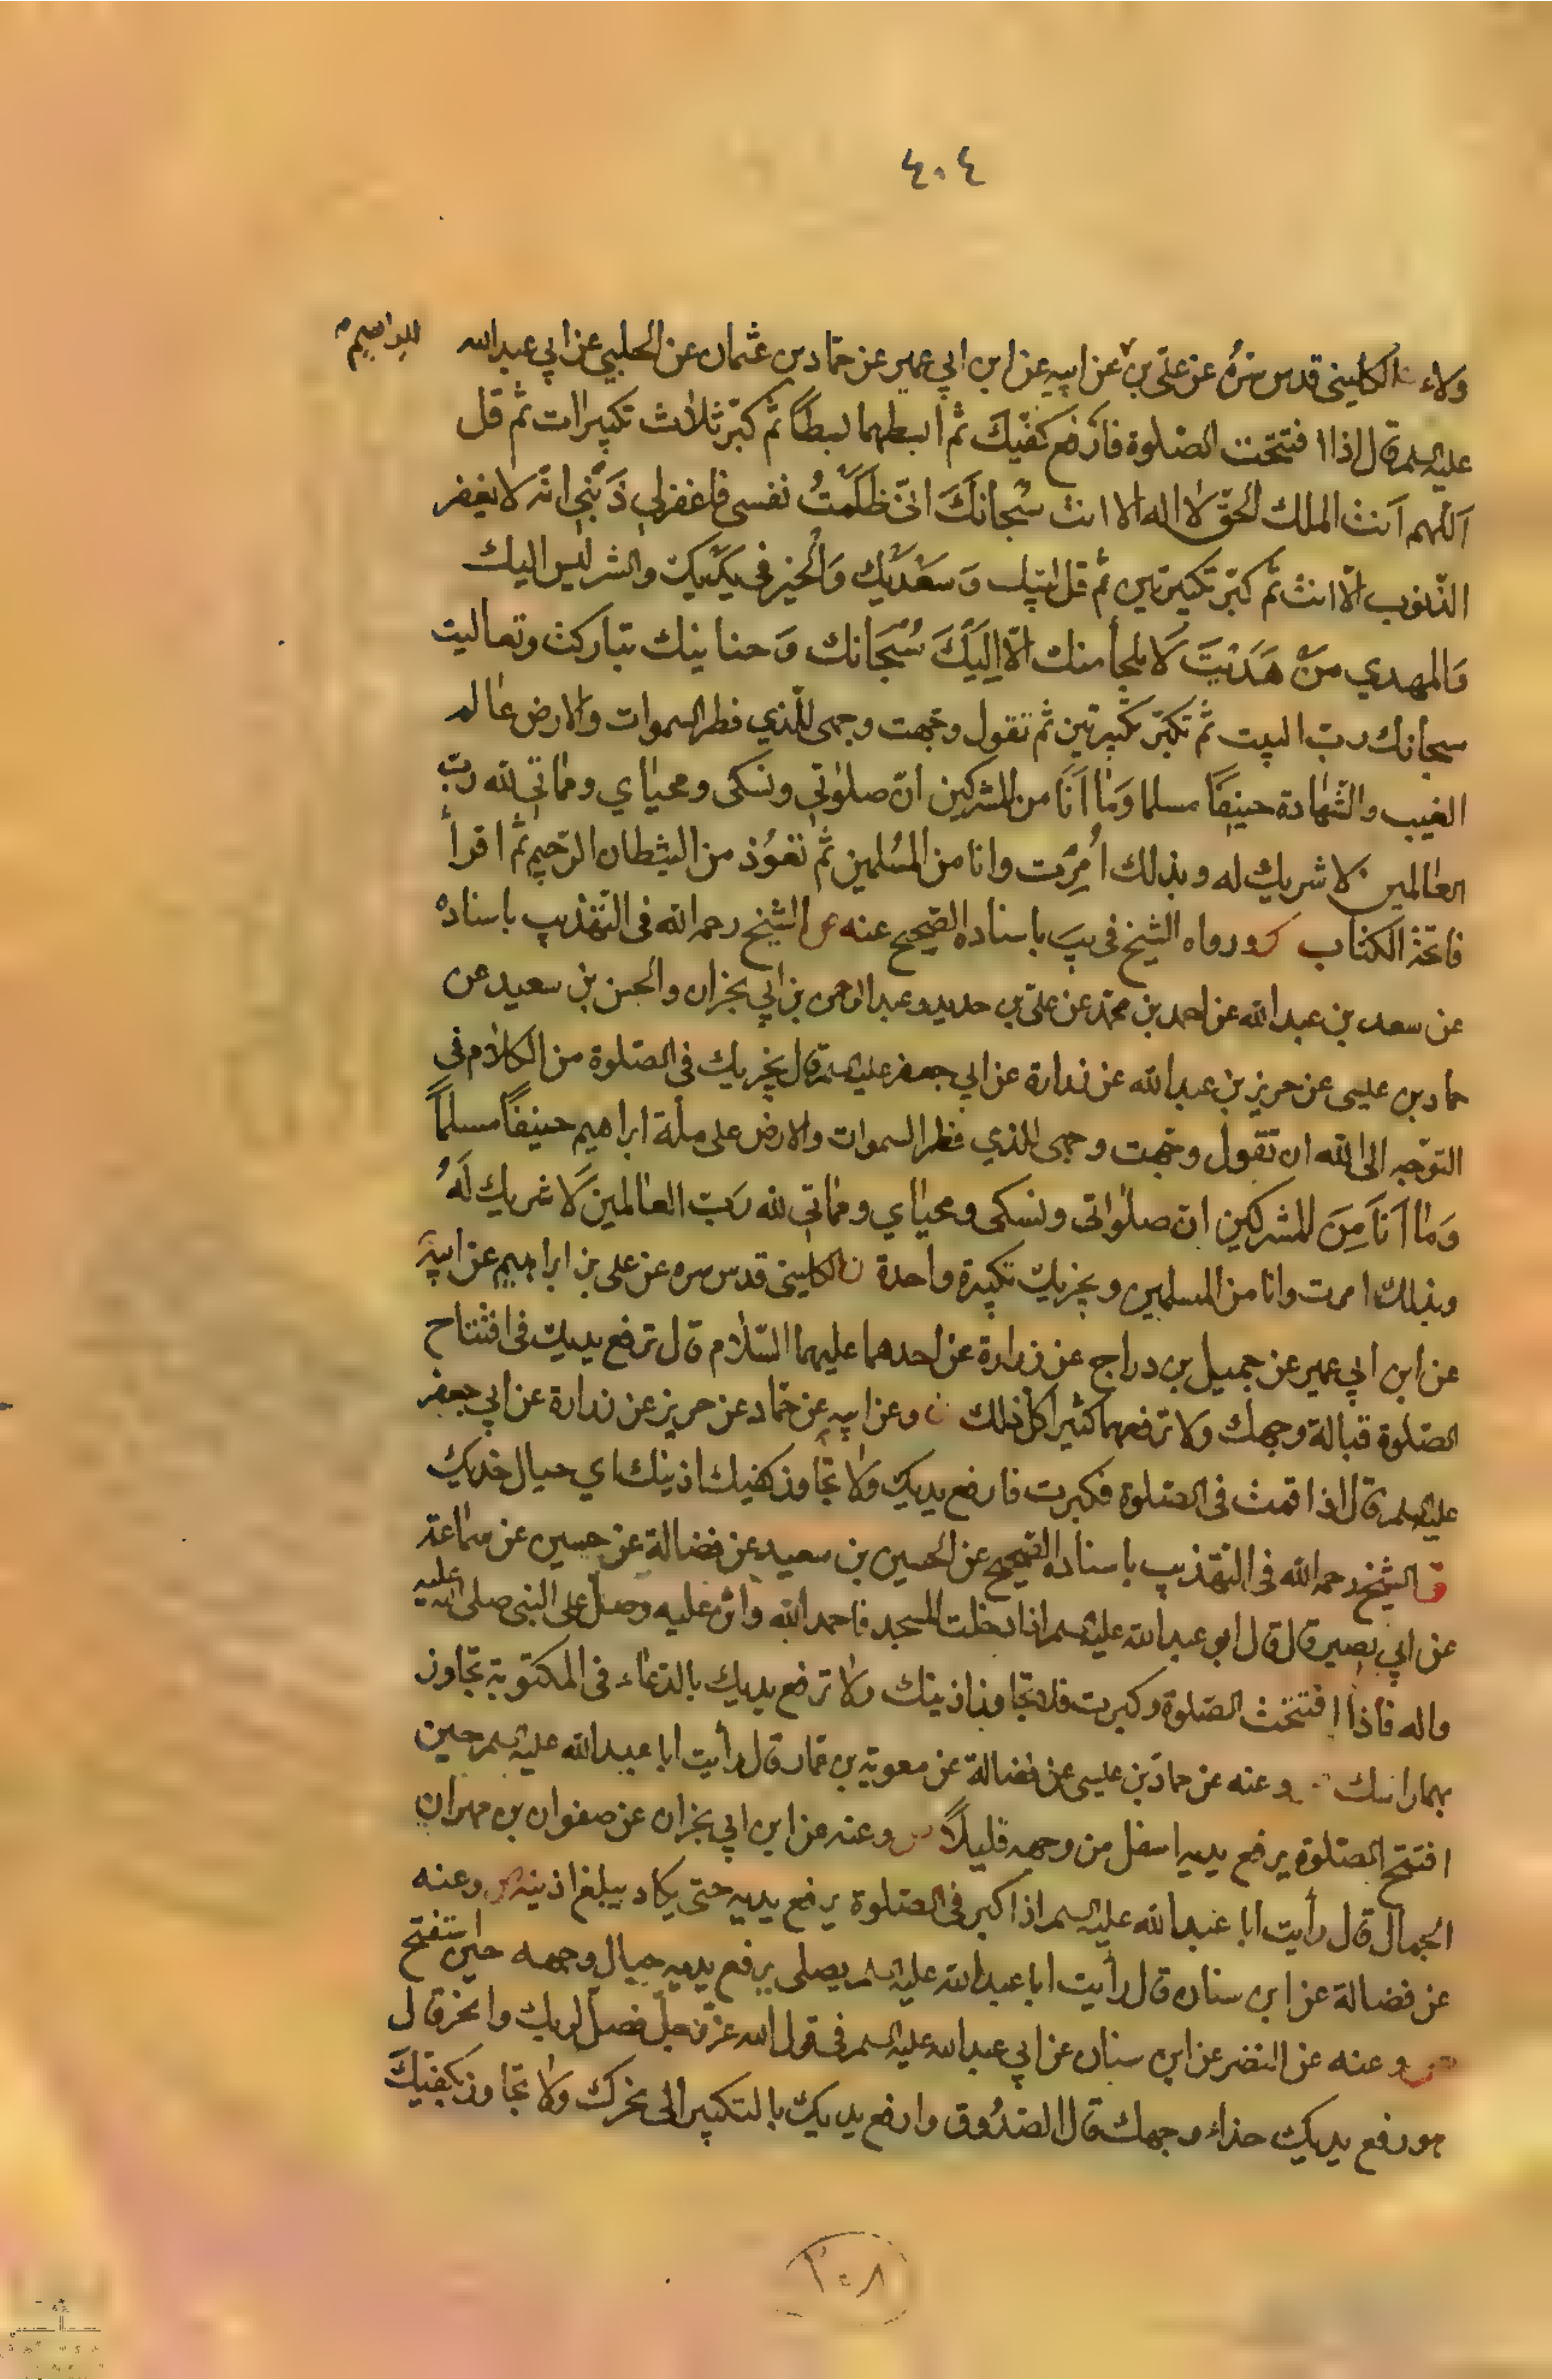 ٤٠٤
ابراهيم
ولاء الكليني قدس سرّه عن علي بن عن ابيه عن ابن ابي عمير عن حمّاد بن عثمان عن الحلبي عن ابي عبدالله
عليه السلم قال اذا افتتحت الصّلوة فارفع كفّيك ثم ابسطهما بسطاً ثم كبّر ثلاث تكبيرات ثم قل
اَللّهم اَنت الملك الحقّ لا اله الا انت سُبحانَكَ انّي ظَلَمْتُ نفسي فاغفرلي ذَنْبي انّه لا يغفر
الذّنوب الّا انت ثم كبّر تكبيرتين ثم قل لبّيك وَ سَعْدَيْك وَالْخير في يَدَيك والشر ليس اليك
وَالمهدي مَنْ هَدَيْتَ لَا ملجأ منك الّا اِلَيْكَ سُبْحَانك وَ حنانيك تباركت وتعاليت
سبحانك ربّ البيت ثم تكبّر تكبيرتين ثم تقول وجّهت وجهي للّذي فطر السموات والارض عالم
الغيب والشّهادة حنيفاً مسلما وَمٰا اَنَا من المشركين انّ صلوٰتي ونسكي ومحياي ومماتي لله ربّ
العالمين لا شريك له وبذلك اُمِرْت وانا من المُسلمين ثم تعوّذ من الشيطان الرّجيم ثم اقرأ
فاتحة الكتاب كر ورواه الشيخ في يبَ باسناده الصّحيح عنه ص الشيخ رحمه الله في التهذيب باسناده
عن سعد بن عبدالله عن احمد بن محمّد عن علي بن حديد وعبدالرحمن بن ابي نجران والحسن بن سعيد عن
حماد بن عيسى عن حريز بن عبدالله عن زرارة عن ابي جعفر عليه السلم قال يجزيك في الصّلوة من الكلام في
التوجّه الى الله ان تقول وجّهت وجهي للذي فطر السموات والارض على ملّة ابراهيم حنيفاً مسلماً
وَمٰا اَنَا مِنَ المشركين ان صلواتي ونسكي ومحياي ومماتي لله رَبّ العالمين لَا شريك لَهُ
وبذلك امرت وانا من المسلمين ويجزيك تكبيرة واحدة ن الكليني قدس سره عن علي بن ابراهيم عن ابيه
عن ابن ابي عمير عن جميل بن دراج عن زرارة عن احدهما عليهما السّلام قال ترفع يديك في افتتاح
الصّلوة قبالة وجهك ولا ترفعهما كثيرا كل ذلك ن وعن ابيه عن حمّاد عن حريز عن زرارة عن ابي جعفر
عليه السلم قال اذا قمت في الصّلوة فكبرت فارفع يديك ولا تجٰاوز كفيك اذنيك اي حيال خديك
ق الشيخ رحمه الله في التهذيب باسناده الصّحيح عن الحسين بن سعيد عن فضالة عن حسين عن سماعة
عن ابي بصير قال قال ابو عبدالله عليه السلم اذا دخلت المسجد فاحمد الله واثن عليه وصلّ على النبي صلى الله عليه
واله فاذا افتتحت الصّلوة وكبرت فلا تجاوز اذنيك ولا ترفع يديك بالدّعاء في المكتوبة تجاوز
بهما راسك وعنه عن حماد بن عيسى عن فضالة عن معوية بن عمار قال رأيت ابا عبدالله عليه السلم حين
افتتح الصّلوة يرفع يديه اسفل من وجهه قليلاً ص وعنه عن ابن ابي نجران عن صفوان بن مهران
الجمال قال رأيت ابا عبدالله عليه السلم اذا كبر في الصّلوة يرفع يديه حتى يكاد يبلغ اذنيه ص وعنه
عن فضالة عن ابن سنان قال رأيت ابا عبدالله عليه السلم يصلي يرفع يديه حيال وجهه حين استفتح
ص وعنه عن النضر عن ابن سنان عن ابي عبدالله عليه السلم في قول الله عزّ وجلّ فصلّ لربك وانحر قال
هو رفع يديك حذاء وجهك قال الصّدُوق وارفع يديك بالتكبير الى نحرك ولا تجٰاوز بكفيّك
١٠٨